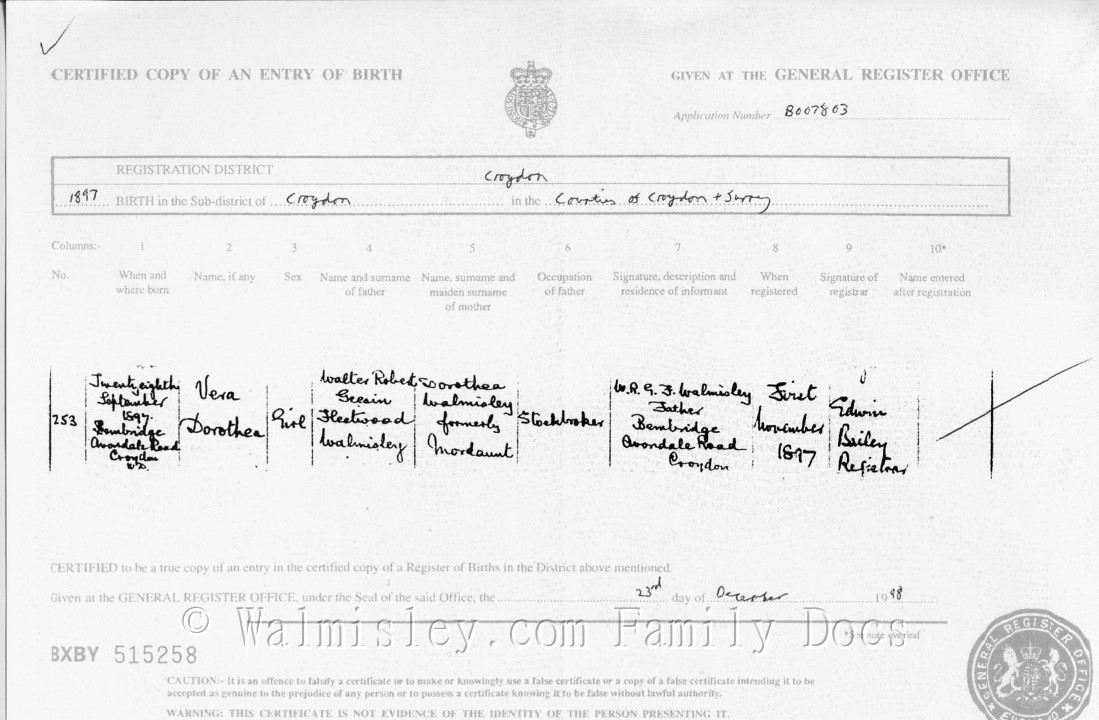 CERTIFIED COPY OF AN ENTRY OF BIRTH
GIVEN AT THE GENERAL REGISTER OFFICE
Application Number B007803
REGISTRATION DISTRICT Croydon
1897 BIRTH in the Sub-district of Croydon in the Counties of Croydon + Surrey
Columns:- 1 2 3 4 5 6 7 8 9 10*
No. When and where born Name, if any Sex Name and surname of father Name, surname and maiden surname of mother Occupation of father Signature, description and residence of informant When registered Signature of registrar Name entered after registration
253
Twentyeighth
September
1897
Bembridge
Avondale Road
Croydon
Vera
Dorothea
Girl
Walter Robert
Fleetwood
Walmisley
Dorothea
Walmisley
formerly
Mordaunt
Stockbroker
W. R. G. F. Walmisley
Father
Bembridge
Avondale Road
Croydon
First
November
1897
Edwin
Bailey
Registrar
CERTIFIED to be a true copy of an entry in the certified copy of a Register of Births in the District above mentioned.
Given at the GENERAL REGISTER OFFICE, under the Seal of the said Office, the 23rd day of December 1998
© Walmisley.com Family Docs
*See note overleaf
BXBY 515258
CAUTION:- It is an offence to falsify a certificate or to make or knowingly use a false certificate or a copy of a false certificate intending it to be
accepted as genuine to the prejudice of any person or to possess a certificate knowing it to be false without lawful authority.
WARNING: THIS CERTIFICATE IS NOT EVIDENCE OF THE IDENTITY OF THE PERSON PRESENTING IT.
GENERAL REGISTER OFFICE